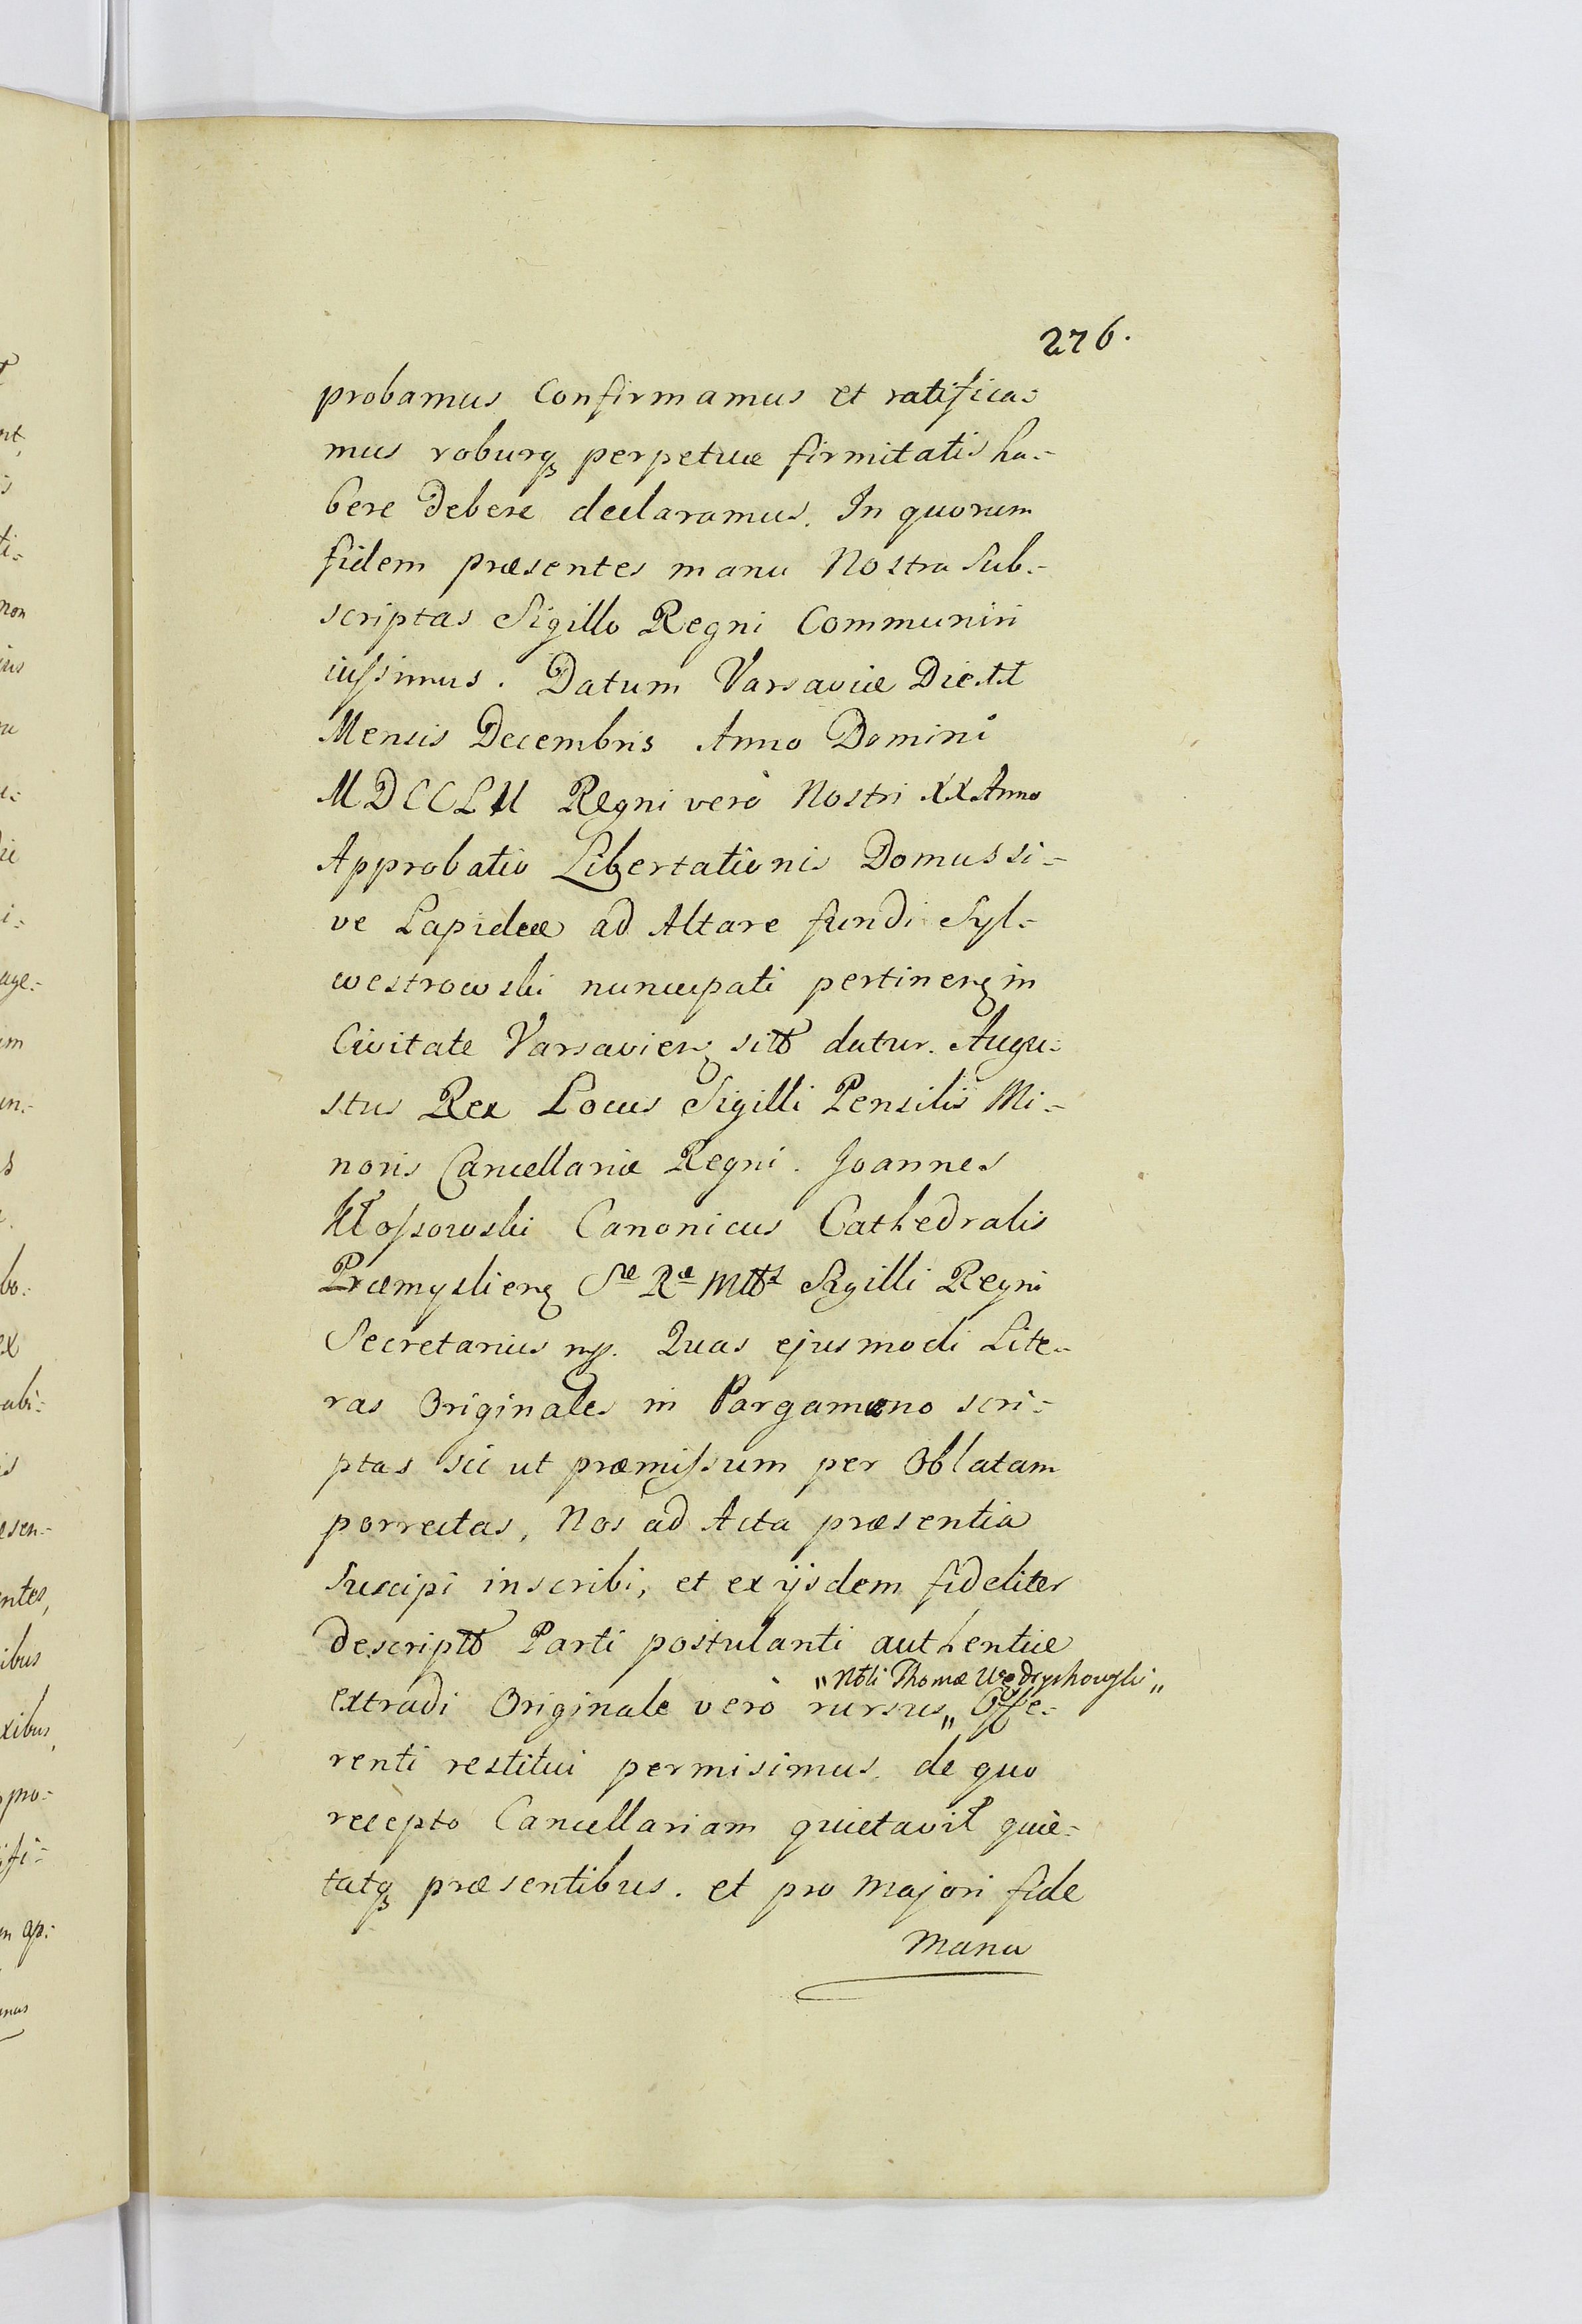 276.
probamus Confirmamus et ratifica=
mus roburq perpetuæ firmitatis ha=
bere Debere declaramus. In quorum
fidem præsentes manu Nostra Sub=
scriptas Sigillo Regni Communiri
iussimus. Datum Varsaviæ Die
Mensis Decembris Anno Domini
MDCCLII Regni verò Nostri XX Anno
Approbatio Libertationis Domus si=
ve Lapideæ ad Altare fundi Syl=
westrowski nuncupati pertinen in
Civitate Varsavien sitæ datur. Augu=
stus Rex Locus Sigilli Pensilis Mi=
noris Cancellariæ Regni. Joannes
Kłossowski Canonicus Cathedralis
Præmyslien Sæ Ræ Mttis Sigilli Regni
Secretarius mp. Quas ejusmodi Lite=
ras Originales in Pargameno scri=
ptas sic ut præmissum per Oblatam
porrectas, Nos ad Acta præsentia
Suscipi inscribi, et ex ijsdem fideliter
descriptæ Parti postulanti authentice
"Nbli Thomæ"
extradi Originale verò rursus„ Offe=
renti restitui permisimus. de quo
recepto Cancellariam quietavit quie=
tatq præsentibus. et pro majori fide
manu